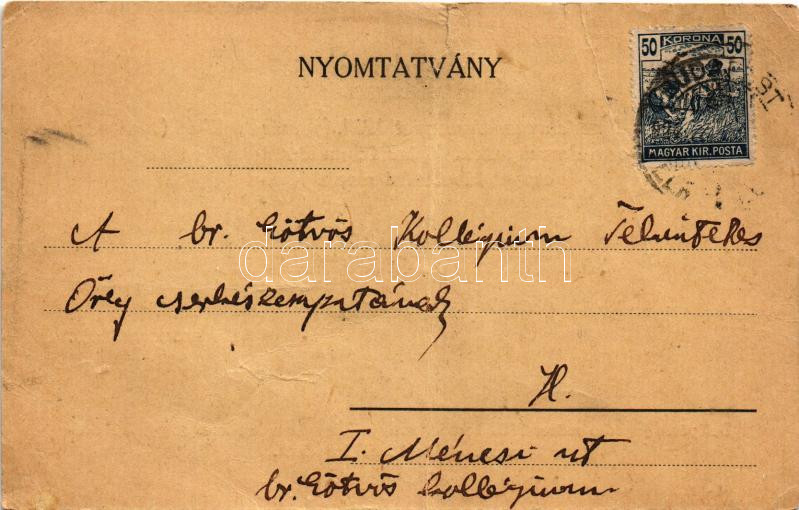 NYOMTATVÁNY
50 KORONA 50
MAGYAR KIR. POSTA
A br. Eötvös Kollégium Tekintetes
darabanth
Öreg cserkészcsapatának
H.
I. Ménesi út
br. Eötvös Collégium